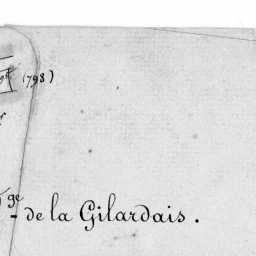 (798)
ge de la Gilardais.